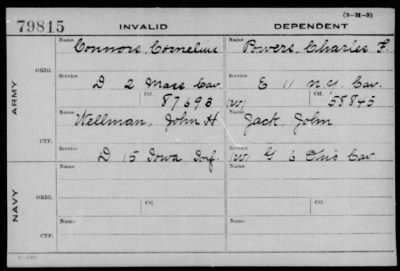 (3-M-3)
79815 INVALID DEPENDENT
Name Name
Connors, Cornelius Powers, Charles F.
ORIG.
Service Service
D 2 Mass Cav E 11 N.Y. Cav.
Ctf. 87693 (W) Ctf. 55845
ARMY
Name Name
Wellman, John H Jack, John
CTF.
Service Service
D 15 Iowa Inf. (W) G 6 Ohio Cav
Name Name
ORIG.
Ctf. Ctf.
NAVY
Name Name
CTF.